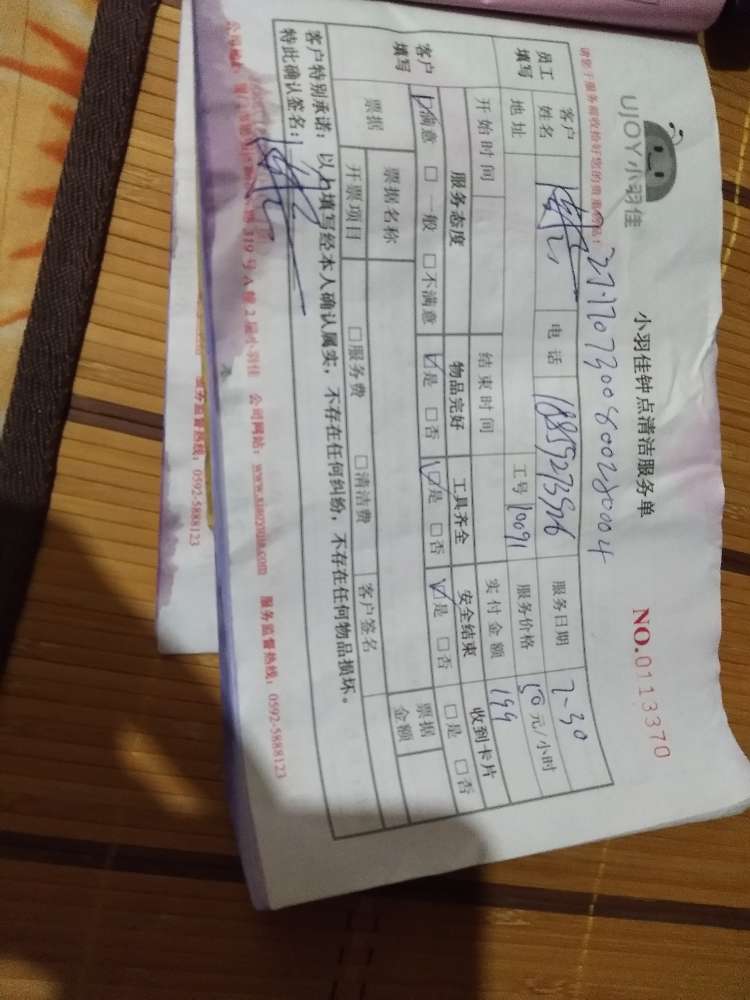 UJOY小羽佳
小羽佳钟点清洁服务单
NO.0113370
请您于服务前收捡好您的贵重物品！
员工填写 客户姓名 电话 18859273526 服务日期 7-30
地址 工号 10091 服务价格 50元/小时
开始时间 结束时间 实付金额 199
客户填写 服务态度 物品完好 工具齐全 安全结束 收到卡片
☑满意 □一般 □不满意 ☑是 □否 ☑是 □否 ☑是 □否 □是 □否
票据 票据名称 票据金额
开票项目 □服务费 □清洁费 客户签名
客户特别承诺：以上填写经本人确认属实，不存在任何纠纷，不存在任何物品损坏。
特此确认签名：
319号A幢2层小羽佳 公司网站：www.xiaoyujia.com 服务监督热线：0592-5888123
服务监督热线：0592-5888123